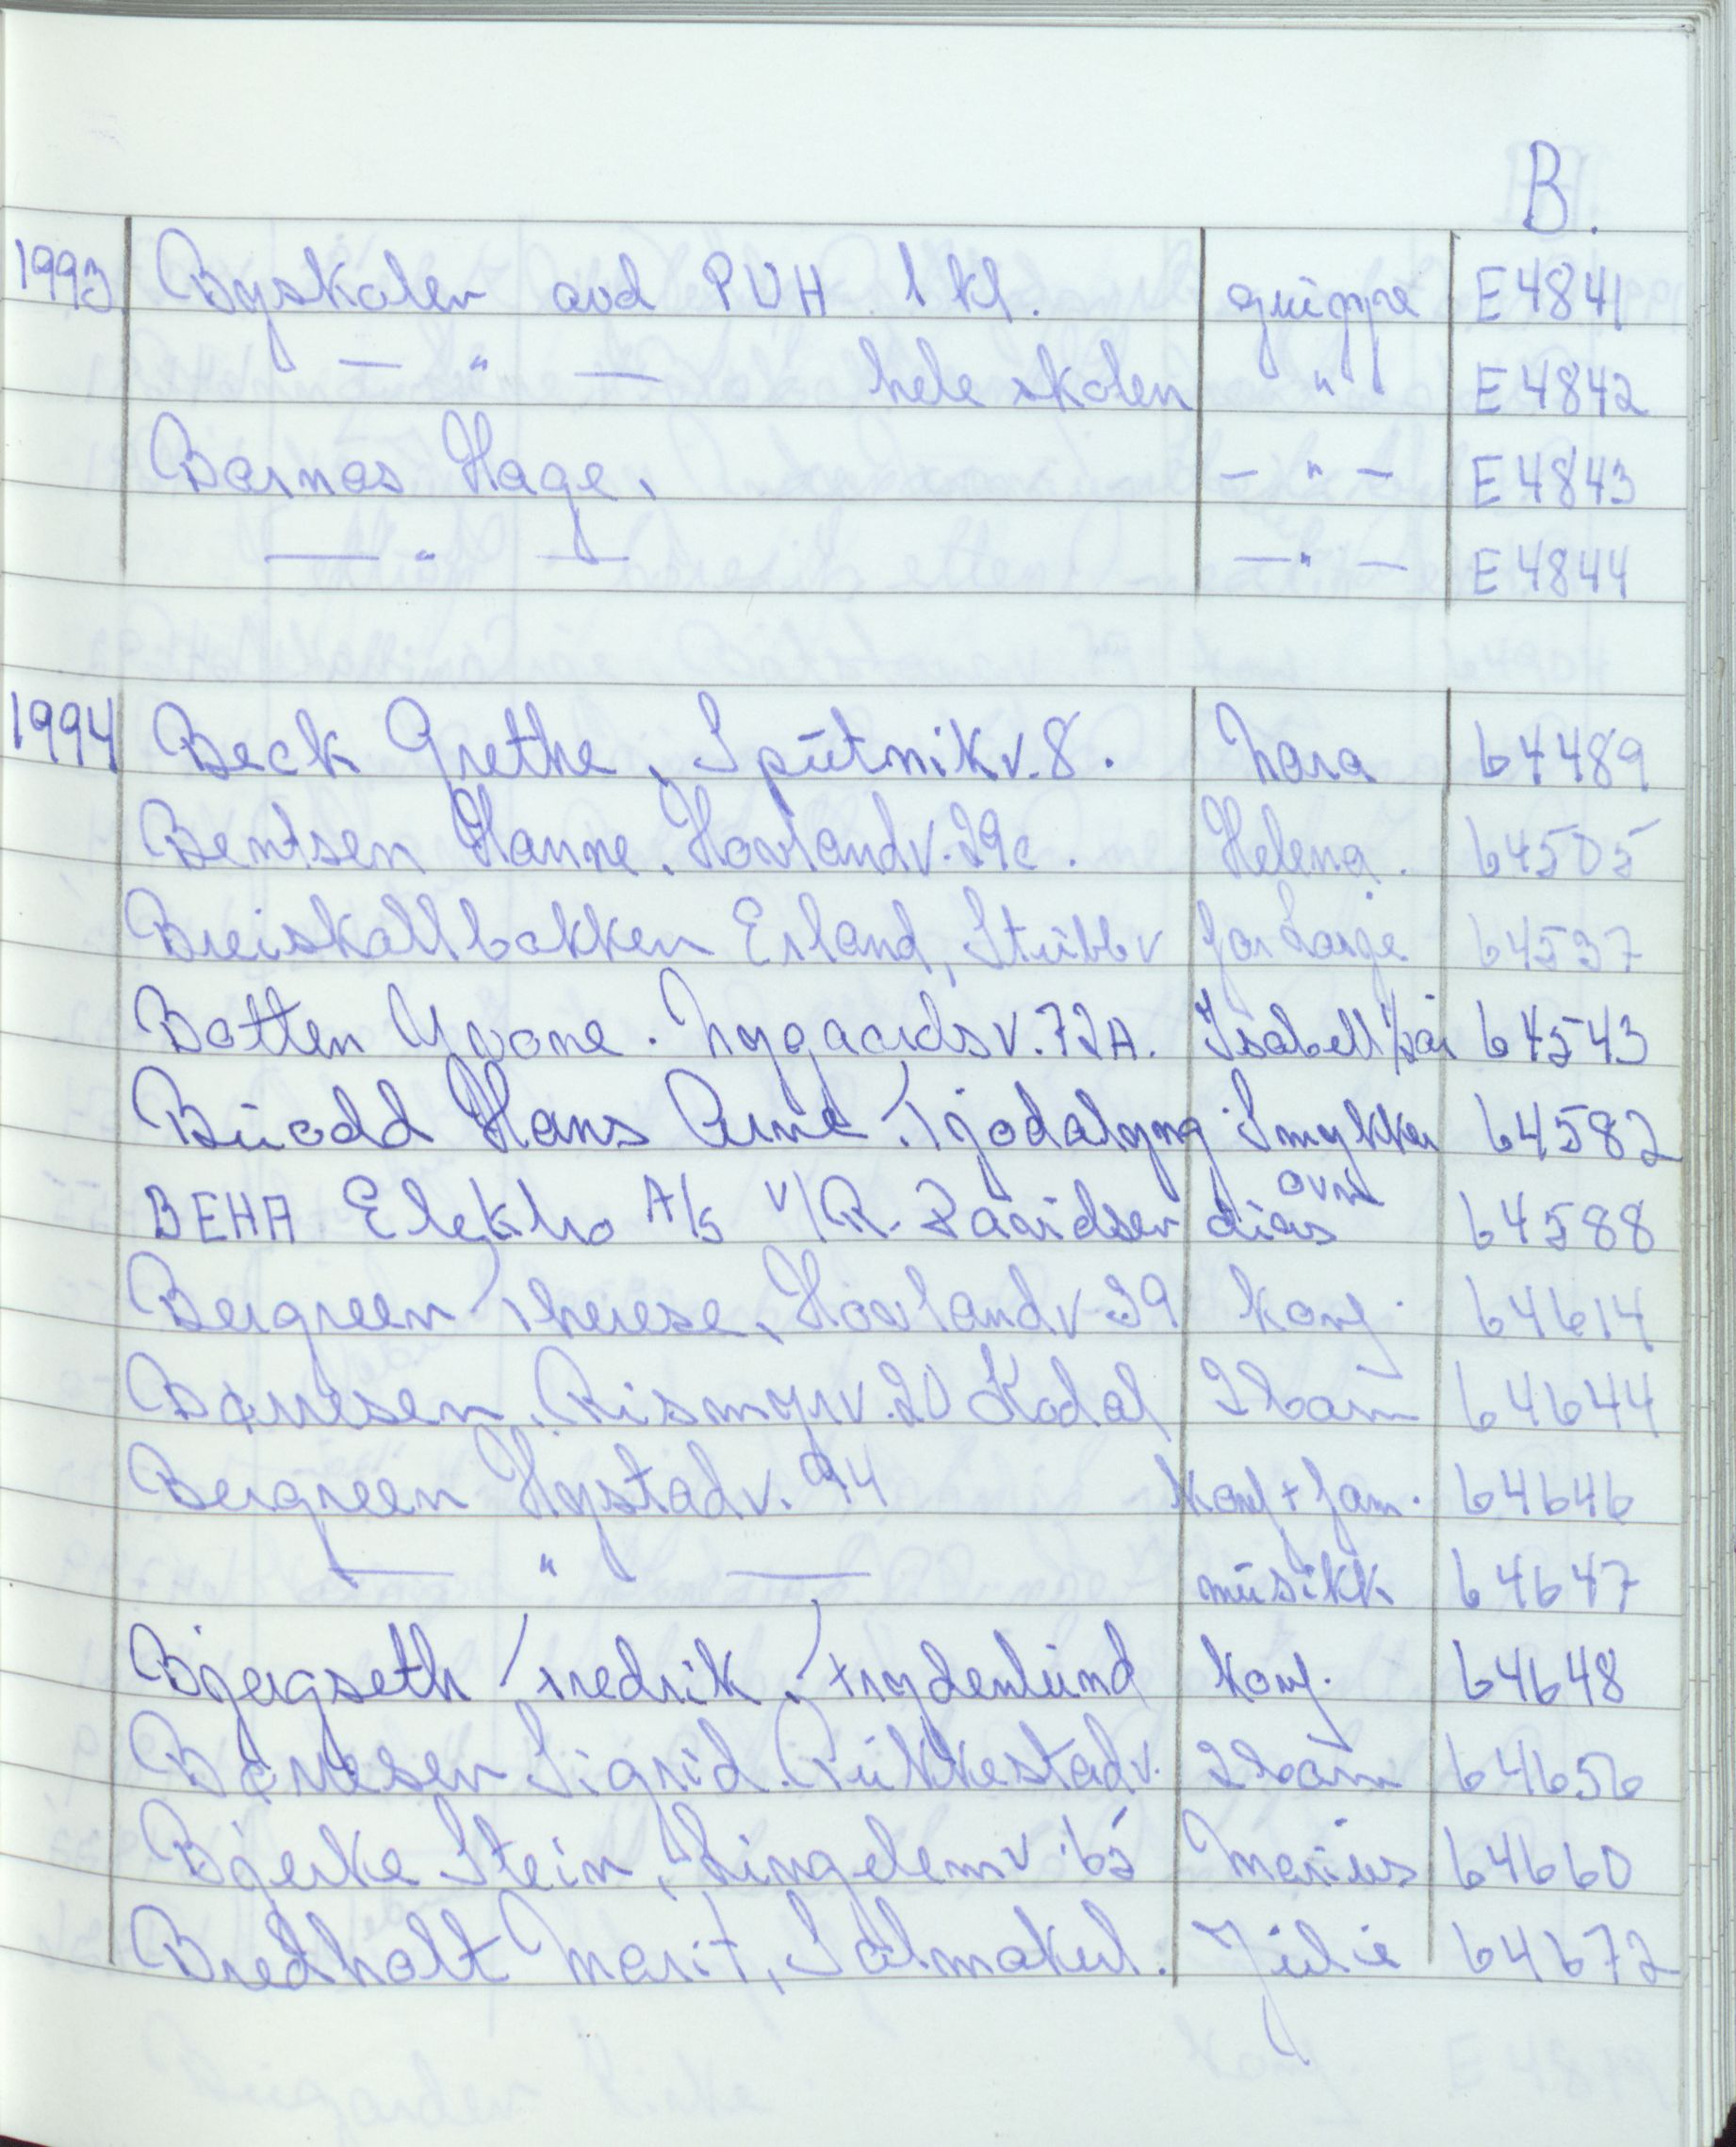 B.
1993 Byskolen avd PUH 1 kl. gruppe E4841
— " — hele skolen " E4842
Barnas Hage. — " — E4843
— " — — " — E4844
1994 Beck Grethe, Sputnikv. 8. Nora 64489
Bentsen Hanne. Hovlandv. 29c. Helena. 64505
Breiskallbakken Erland, Stubbv farge 64537
Botten Yvone. Nygaardsv. 72A. Isabell 64543
Buodd Hans Arne. Tjodalyng Smykker 64582
BEHA Elektro A/S v/R. Davidsen div ovn 64588
Bergreen Therese, Hovlandv 39 konf. 64614
Børresen, Rismyrv. 20 Kodal 2 barn 64644
Bergreen Hystadv. 94 konf + fam. 64646
— " — musikk 64647
Bjergseth Fredrik. Frydenlund konf. 64648
Børresen Sigrid. Rukkestadv. 2 barn 64656
Bjerke Stein, Lingelemv. 65 Marius 64660
Bredholt Marit, Salmakerl. Julie 64672